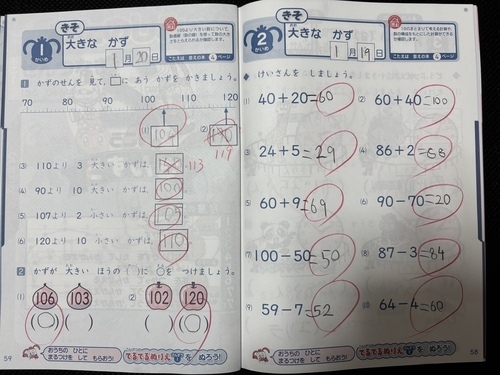 きそ
1
かいめ
大きな かず
1月20日
こたえは 答えの本 4ページ
1 かずのせんを 見て、□に あう かずを かきましょう。
70 80 90 100 110 120
(1) (2)
119
(3) 110より 3 大きい かずは 113
(4) 90より 10 大きい かずは 100
(5) 107より 2 小さい かずは 105
(6) 120より 10 小さい かずは 110
2 かずが 大きい ほうの( )に ○を つけましょう。
(1) 106 103 (2) 102 120
(○) ( ) ( ) (○)
おうちの ひとに
まるつけを して もらおう!
でるでるぬりえ 1 を ぬろう!
59
きそ
2
かいめ
大きな かず
1月19日
こたえは 答えの本 4ページ
けいさんを しましょう。
(1) 40+20=60 (2) 60+40=100
(3) 24+5=29 (4) 86+2=88
(5) 60+9=69 (6) 90-70=20
(7) 100-50=50 (8) 87-3=84
(9) 59-7=52 (10) 64-4=60
おうちの ひとに
まるつけを して もらおう!
でるでるぬりえ 2 を ぬろう!
58